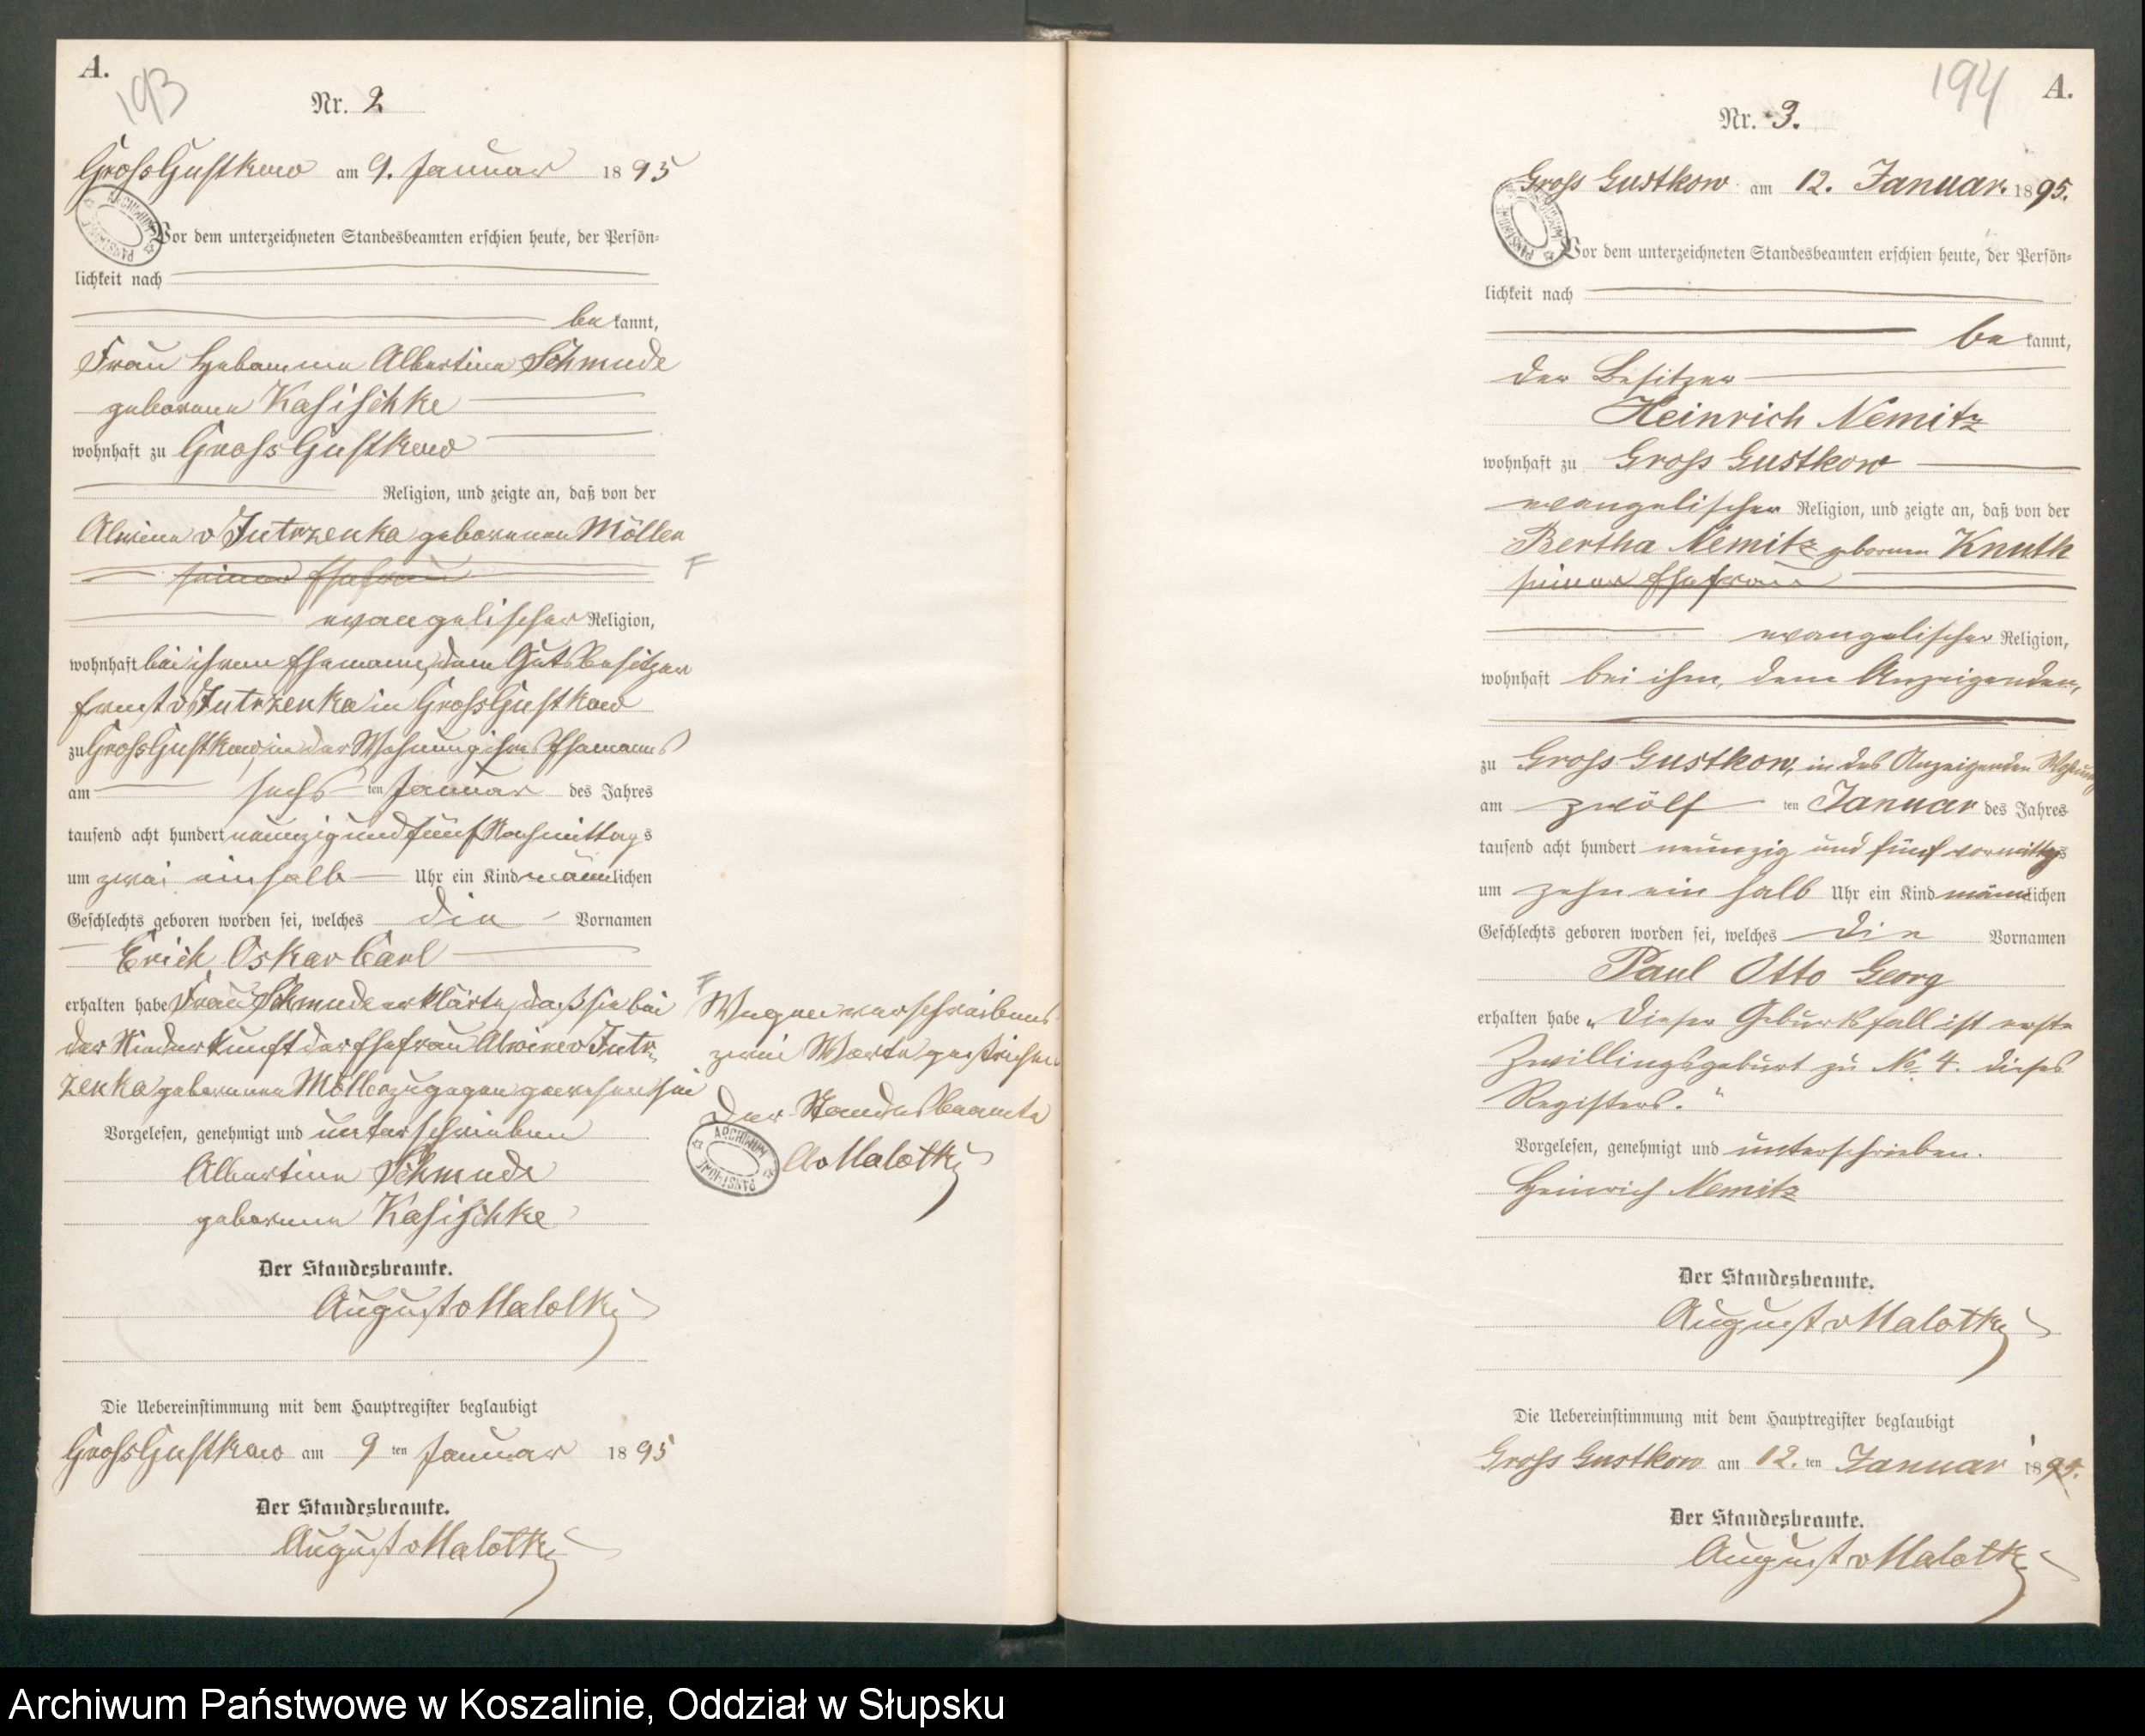 A.
193
Nr. 2
Gross Gustkow am 9. Januar 1895
Vor dem unterzeichneten Standesbeamten erschien heute, der Persön-
lichkeit nach
bekannt,
Frau Hebamme Albertine Schmude
geborene Kasischke
wohnhaft zu Gross Gustkow
Religion, und zeigte an, daß von der
Alwine v Jutrzenka geborenen Möller
seiner Ehefrau F
evangelischer Religion,
wohnhaft bei ihrem Ehemann, dem Gutsbesitzer
Ernst v Jutrzenka in Gross Gustkow
zu Gross Gustkow, in der Wohnung ihres Ehemanns
am sechs ten Januar des Jahres
tausend acht hundert neunzig und fünf Nachmittags
um zwei einhalb Uhr ein Kind männlichen
Geschlechts geboren worden sei, welches die Vornamen
Erich Oskar Carl
erhalten habe Frau Schmude erklärte, daß sie bei
der Niederkunft der Ehefrau Alwine v Jutr-
zenka geborenen Möller zugegen gewesen sei
Vorgelesen, genehmigt und unterschrieben
Albertine Schmude
geborene Kasischke
Der Standesbeamte.
August v Malottky
Die Uebereinstimmung mit dem Hauptregister beglaubigt
Gross Gustkow am 9 ten Januar 1895
Der Standesbeamte.
August v Malottky
F
Wegen verschreibens
zwei Worte gestrichen
Der Standesbeamte
A v Malottky
ARCHIWUM PAŃSTWOWE
194
A.
Nr. 3.
Gross Gustkow am 12. Januar. 1895.
Vor dem unterzeichneten Standesbeamten erschien heute, der Persön-
lichkeit nach
bekannt,
der Besitzer
Heinrich Nemitz
wohnhaft zu Gross Gustkow
evangelischer Religion, und zeigte an, daß von der
Bertha Nemitz geborenen Knuth
seiner Ehefrau
evangelischer Religion,
wohnhaft bei ihm, dem Anzeigenden,
zu Gross Gustkow, in des Anzeigenden Wohnung
am zwölf ten Januar des Jahres
tausend acht hundert neunzig und fünf vormittags
um zehn ein halb Uhr ein Kind männlichen
Geschlechts geboren worden sei, welches die Vornamen
Paul Otto Georg
erhalten habe „Dieser Geburtsfall ist erste
Zwillingsgeburt zu No 4. dieses
Registers."
Vorgelesen, genehmigt und unterschrieben.
Heinrich Nemitz
Der Standesbeamte.
August v Malottky
Die Uebereinstimmung mit dem Hauptregister beglaubigt
Gross Gustkow am 12. ten Januar 1895.
Der Standesbeamte.
August v Malottky
Archiwum Państwowe w Koszalinie, Oddział w Słupsku